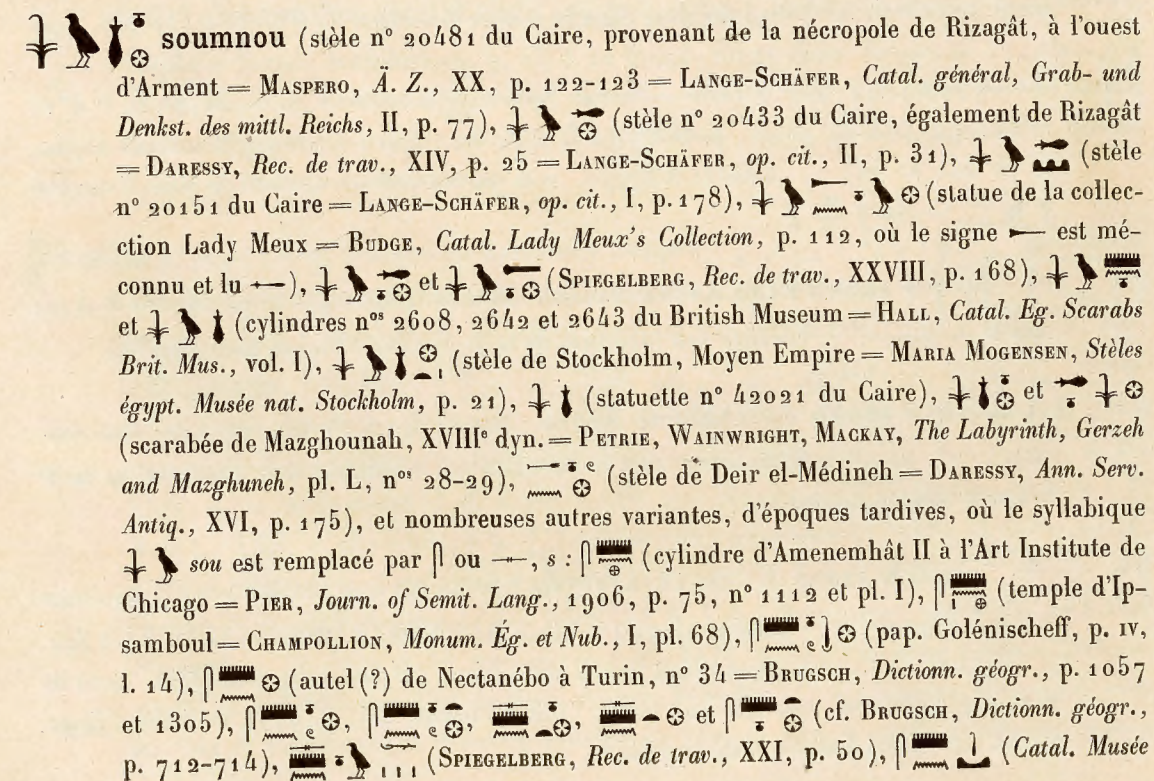 𓇓𓅱 soumnou (stèle n° 20481 du Caire, provenant de la nécropole de Rizagât, à l'ouest
d'Arment = MASPERO, Ä. Z., XX, p. 122-123 = LANGE-SCHÄFER, Catal. général, Grab- und
Denkst. des mittl. Reichs, II, p. 77), (stèle n° 20433 du Caire, également de Rizagât
= DARESSY, Rec. de trav., XIV, p. 25 = LANGE-SCHÄFER, op. cit., II, p. 31), (stèle
n° 20151 du Caire = LANGE-SCHÄFER, op. cit., I, p. 178), (statue de la collec-
tion Lady Meux = BUDGE, Catal. Lady Meux's Collection, p. 112, où le signe est mé-
connu et lu ), et (SPIEGELBERG, Rec. de trav., XXVIII, p. 168),
et (cylindres nos 2608, 2642 et 2643 du British Museum = HALL, Catal. Eg. Scarabs
Brit. Mus., vol. I), (stèle de Stockholm, Moyen Empire = MARIA MOGENSEN, Stèles
égypt. Musée nat. Stockholm, p. 21), (statuette n° 42021 du Caire), et
(scarabée de Mazghounah, XVIIIe dyn. = PETRIE, WAINWRIGHT, MACKAY, The Labyrinth, Gerzeh
and Mazghuneh, pl. L, nos 28-29), (stèle de Deir el-Médineh = DARESSY, Ann. Serv.
Antiq., XVI, p. 175), et nombreuses autres variantes, d'époques tardives, où le syllabique
𓇓𓅱 sou est remplacé par 𓋴 ou 𓊃, s : (cylindre d'Amenemhât II à l'Art Institute de
Chicago = PIER, Journ. of Semit. Lang., 1906, p. 75, n° 1112 et pl. I), (temple d'Ip-
samboul = CHAMPOLLION, Monum. Ég. et Nub., I, pl. 68), (pap. Golénischeff, p. IV,
l. 14), (autel (?) de Nectanébo à Turin, n° 34 = BRUGSCH, Dictionn. géogr., p. 1057
et 1305), , , et (cf. BRUGSCH, Dictionn. géogr.,
p. 712-714), (SPIEGELBERG, Rec. de trav., XXI, p. 50), (Catal. Musée